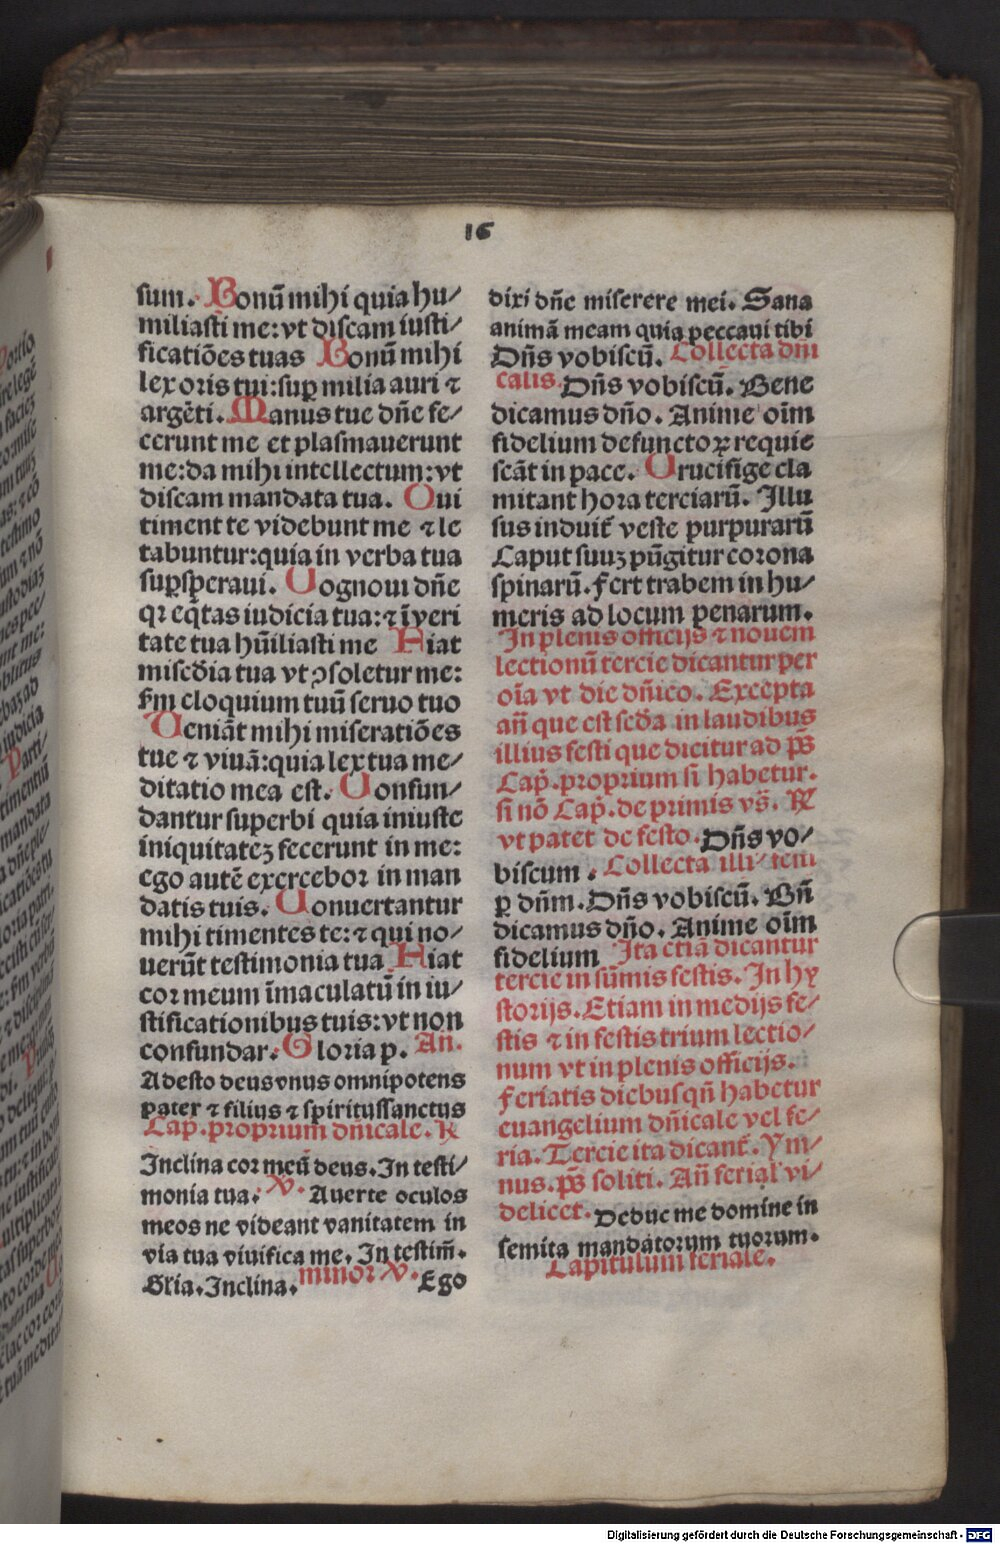 16
sum. Bonū mihi quia hu/
miliasti me: vt discam iusti/
ficatiōes tuas Bonū mihi
lex oris tui: sup milia auri ⁊
argēti. Manus tue dn̄e fe/
cerunt me et plasmauerunt
me: da mihi intellectum: vt
discam mandata tua. Qui
timent te videbunt me ⁊ le
tabuntur: quia in verba tua
supsperaui. Cognoui dn̄e
qꝛ eq̄tas iudicia tua: ⁊ ī veri
tate tua hūiliasti me Fiat
miscd̄ia tua vt ꝯsoletur me:
fm eloquium tuū seruo tuo
Ueniāt mihi miseratiōes
tue ⁊ viuā: quia lex tua me/
ditatio mea est. Confun/
dantur superbi quia iniuste
iniquitateʒ fecerunt in me:
ego autē exercebor in man
datis tuis. Conuertantur
mihi timentes te: ⁊ qui no/
uerūt testimonia tua Fiat
cor meum īmaculatū in iu/
stificationibus tuis: vt non
confundar. Gloria p. An.
Adesto deus vnus omnipotens
pater ⁊ filius ⁊ spiritussanctus
Cap. proprium dn̄icale. ℟
Inclina cor meū deus. In testi/
monia tua. ℣. Auerte oculos
meos ne videant vanitatem in
via tua viuifica me. In testim̄.
Gl̄ia. Inclina. minor ℣. Ego
dixi dn̄e miserere mei. Sana
animā meam quia peccaui tibi
Dn̄s vobiscū. Collecta dn̄i
calis. Dn̄s vobiscū. Bene
dicamus dn̄o. Anime oīm
fidelium defunctoꝝ requie
scāt in pace. Crucifige cla
mitant hora terciarū. Illu
sus induit̄ veste purpurarū
Caput suuʒ pūgitur corona
spinarū. Fert trabem in hu/
meris ad locum penarum.
In plenis officijs ⁊ nouem
lectionū tercie dicantur per
oīa vt die dn̄ico. Excepta
an̄ que est scd̄a in laudibus
illius festi que dicitur ad ps̄
Cap. proprium si habetur.
si nō Cap. de primis vs̄. ℟
vt patet de festo. Dn̄s vo/
biscum. Collecta illi/ tem
ꝑ dn̄m. Dn̄s vobiscū. Bn̄
dicamus dn̄o. Anime oīm
fidelium Ita etiā dicantur
tercie in sūmis festis. In hy
storijs. Etiam in medijs fe/
stis ⁊ in festis trium lectio/
num vt in plenis officijs.
Feriatis diebus qn̄ habetur
euangelium dn̄icale vel fe/
ria. Tercie ita dicant̄. Ym/
nus. ps̄ soliti. An̄ ferial' vi/
delicet. Deduc me domine in
semita mandatorum tuorum.
Capitulum feriale.
Digitalisierung gefördert durch die Deutsche Forschungsgemeinschaft - DFG